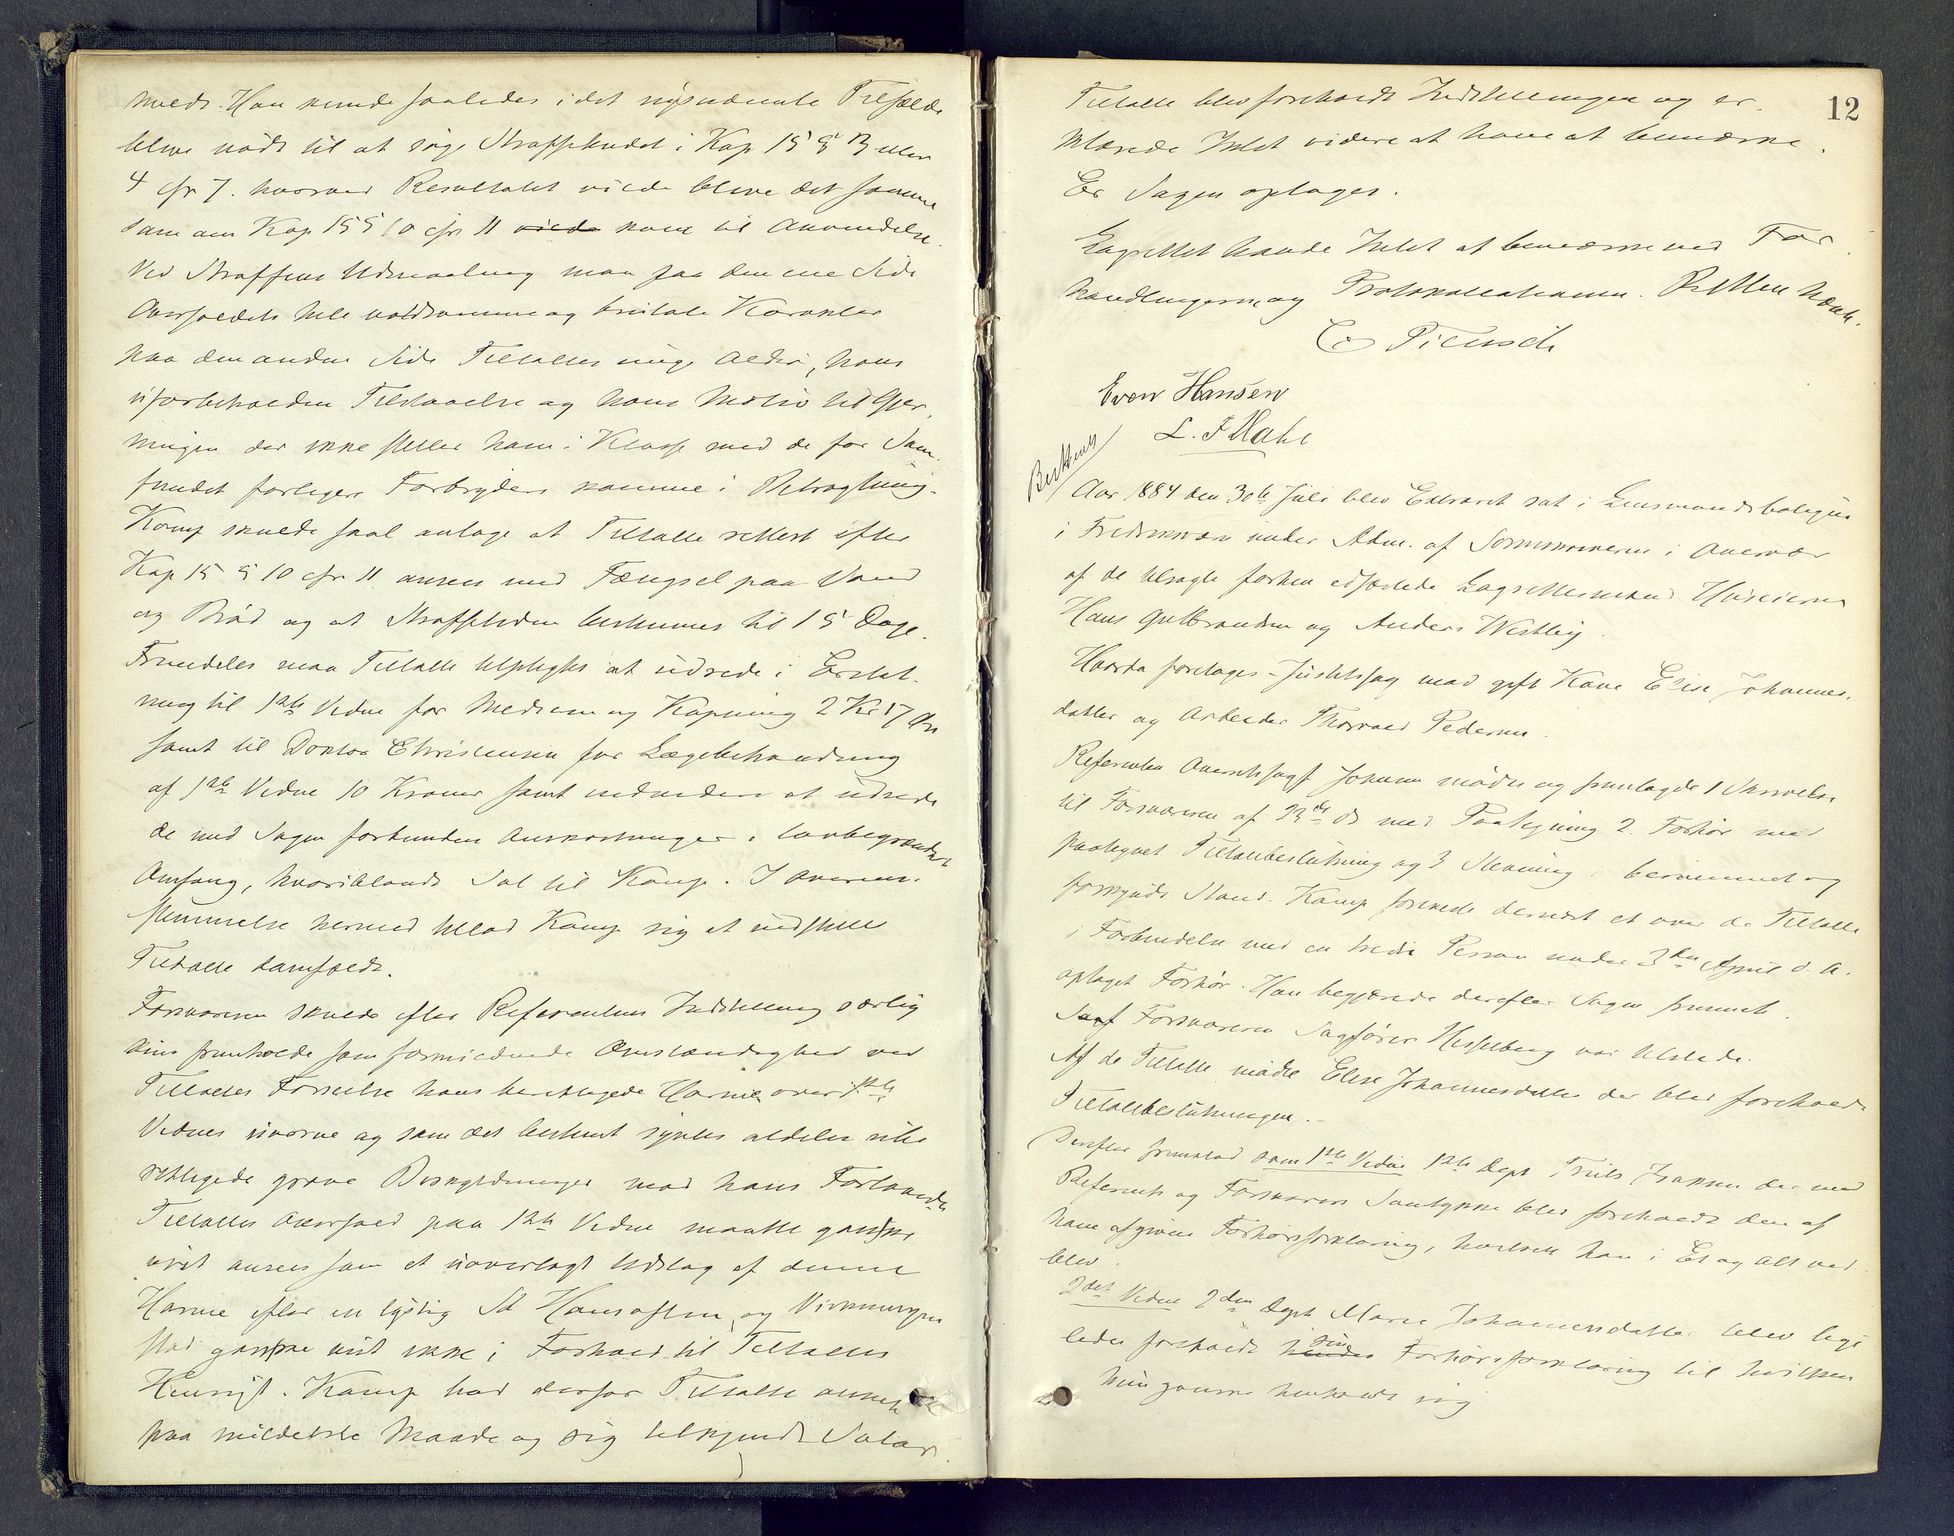 meldt. Han kunde saaledes i det sidstnævnte Tilfælde
blive nødt til at søge Straffebudet i Kap 15 § 3 eller
4 cfr 7. hvorved Resultatet vilde blive det samme
som om Kap 15 § 10 cfr 11 vilde kom til Anvendelse.
Ved Straffens Udmaaling maa paa den ene Side
Overfaldets hele voldsomme og brutale Karakter
paa den anden Side Tiltaltes unge Alder, hans
uforbeholdne Tilstaaelse og hans Motiv til Gjer-
ningen der ikke stiller ham i Klasse med de for Sam-
fundet farligere Forbrydere komme i Betragtning.
Komp skulde saal antage at Tiltalte rettest efter
Kap 15 § 10 cfr 11 ansees med Fængsel paa Vand
og Brød og at Straffetiden bestemmes til 15 Dage.
Fremdeles maa Tiltalte tilpligtes at udrede i Erstat-
ning til 1ste Vidne for Medicin og Kopning 2 Kr 17 Øre
samt til Doktor Christensen for Lægebehandling
af 1ste Vidne 10 Kroner samt endvidere at udrede
de med Sagen forbundne Omkostninger i lovbegrændset
Omfang, hvoriblandt Sal til Komp. I Overens-
stemmelse hermed tillod Komp sig at indstille
Tiltalte domfældt.
Forsvareren skulde efter Referentens Indstilling særlig
kun fremholde som formildende Omstændighed ved
Tiltaltes Forseelse hans berettigede Harme over 1ste
Vidnes uvorne og som det bestemt synes aldeles ube-
rettigede grove Beskyldninger mod hans Forlovede
Tiltaltes Overfald paa 1ste Vidne maatte ganske
vist ansees som et uoverlagt Udslag af denne
Harme efter en lystig St Hansaften, og Virkningen
stod ganske vist ikke i Forhold til Tiltaltes
Hensigt. Komp bad derfor Tiltalte anseet
paa mildeste Maade og sig tilkjendt Salar.
12
Tiltalte blev foreholdt Indstillingen og er-
klærede Intet videre at have at bemærke.
Er Sagen optaget.
Lagrettet havde Intet at bemærke ved For-
handlingerne og Protokollationen. Retten hævet.
Even Hansen
Aar 1884 den 30te Juli blev Extraret sat i Lensmandsboligen
i under Adm. af Sorenskriveren i Overvær
af de tilsagte forhen edfæstede Lagrettesmænd Huseierne
Hans Gulbrandsen og Anders Westby.
Hvorda foretages Justitssag mod gift Kone Elise Johannes-
datter og Arbeider Thorvald Pedersen.
Referenten Overretssagf Johnsen mødte og fremlagde 1 Skrivelse
til Forsvareren af 23de ds med Paategning 2. Forhør med
paategnet Tiltalebeslutning og 3 Stevning berammet og
forkyndt Stand. Komp forevede dernæst et over de Tiltalte
i Forbindelse med en tredie Person under 3den April d. A.
optaget Forhør. Han begjærede derefter Sagen fremmet.
Sagf Forsvareren Sagfører Hesselberg var tilstede.
Af de Tiltalte mødte Elise Johannesdatter der blev foreholdt
Tiltalebeslutningen.
Derefter fremstod som 1ste Vidne 1ste Dept Isaksen der med
Referents og Forsvarers Samtykke blev foreholdt den af
ham afgivne Forhørsforklaring, hvilken han i Et og Alt ved-
blev.
2det Vidne 2den Dept Maren Johannesdatter blev lige-
ledes foreholdt hendes sin Forhørsforklaring til hvilken
hun ganske henholdt sig